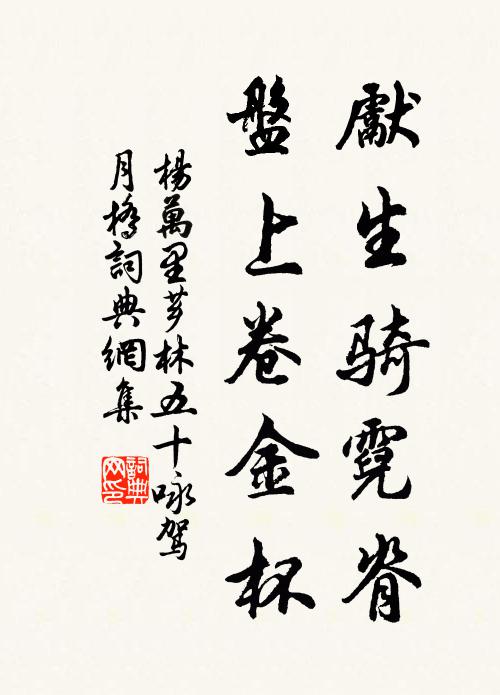 獻生騎霓脊
盤上卷金杯
楊萬里芗林五十咏駕
月橋詞典網集
詞典网印